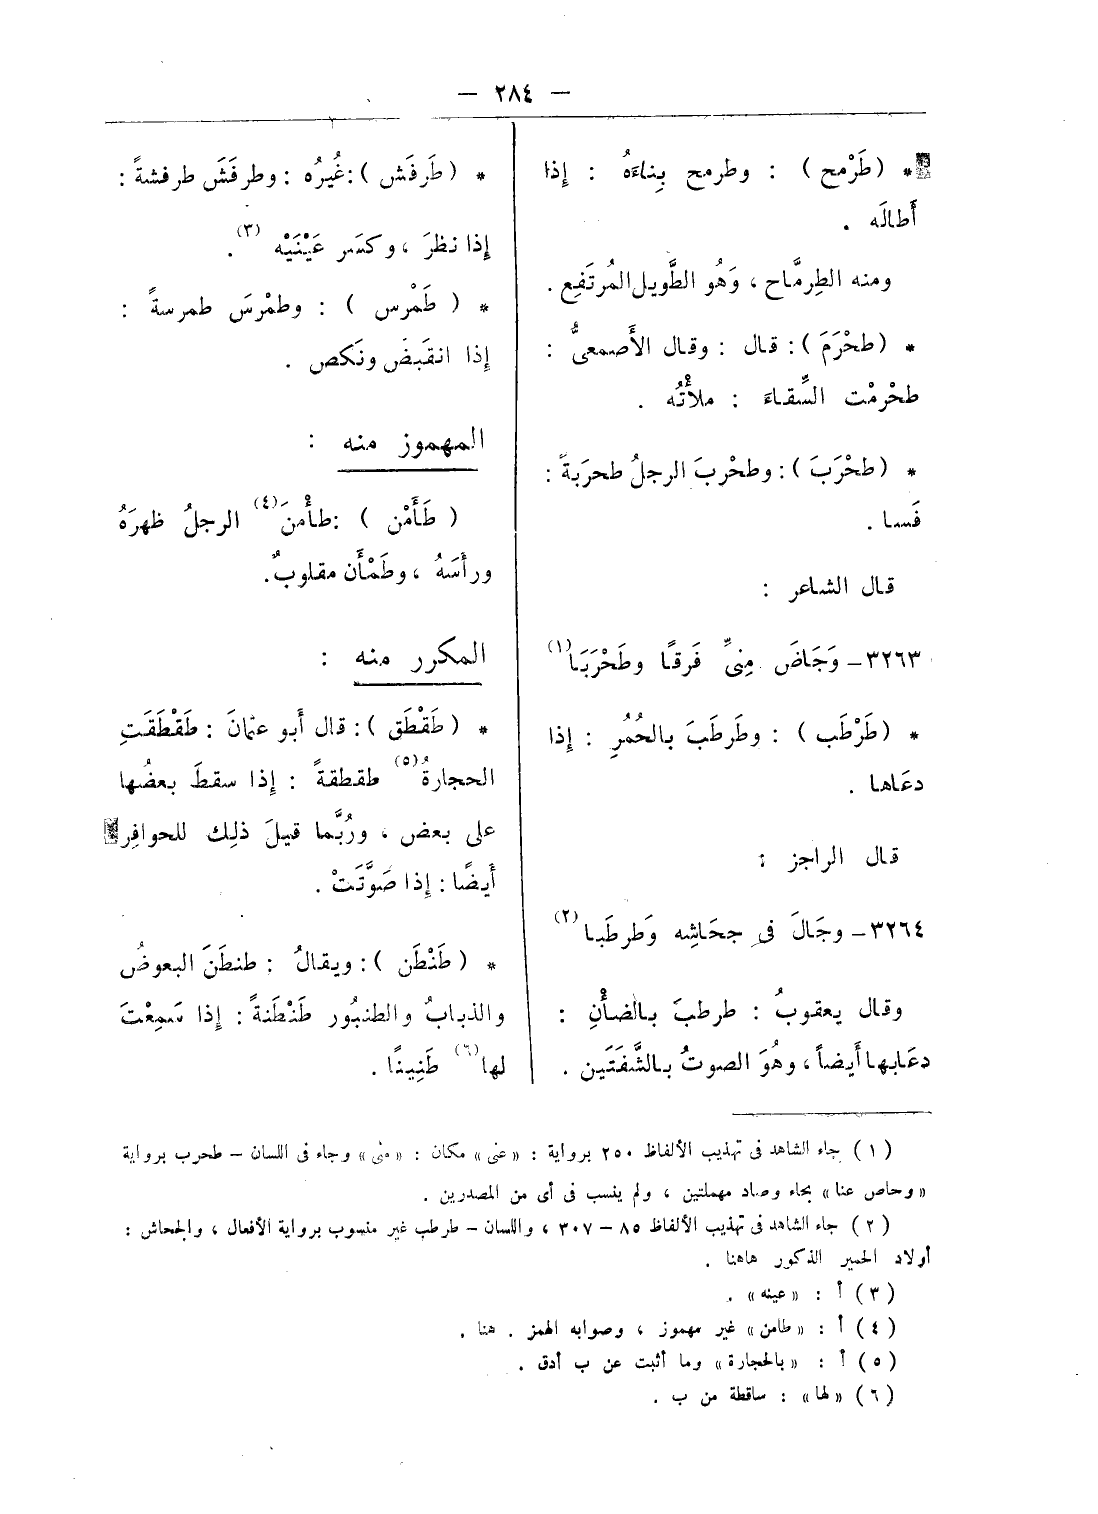 — ٢٨٤ —
* (طَرْمح) : وطرمح بِناءَهُ : إِذا
أَطالَه .
ومنه الطِرِمَّاح ، وَهُو الطَّويل المُرتَفِع .
* (طحْرَمَ) : قال : وقال الأَصمعىُّ :
طحْرمْت السِّقاءَ : ملأْتُه .
* (طحْرَبَ) : وطحْربَ الرجلُ طحرَبةً :
فَسا .
قال الشاعر :
٣٢٦٣ – وَجَاضَ مِنِّى فَرقًا وطَحْرَبَا (١)
* (طَرْطَب) : وطَرطَبَ بالحُمُرِ : إِذا
دعَاها .
قال الراجز :
٣٢٦٤ – وجَالَ فى جحَاشِه وَطرطَبا (٢)
وقال يعقوبُ : طرطبَ بالضأْنِ :
دعَابها أَيضاً ، وهُوَ الصوتُ بالشَّفَتَين .
* (طَرفَش) : غُيرُه : وطرفَشَ طرفشةً :
إِذا نظرَ ، وكسَر عَيْنَيْه (٣) .
* (طَمْرس) : وطمْرسَ طمرسةً :
إِذا انقَبضَ ونَكص .
المهموز منه :
(طَأْمَن) : طأْمنَ (٤) الرجلُ ظهرَهُ
ورأَسَهُ ، وطَمْأَن مقلوبٌ .
المكرر منه :
* (طَقْطَق) : قال أَبو عثمانَ : طَقْطَقَتِ
الحجارةُ (٥) طقطقةً : إِذا سقطَ بعضُها
على بعض ، ورُبَّما قيلَ ذلِك للحوافِر
أَيضًا : إِذا صَوَّتَتْ .
* (طَنْطَن) : ويقالُ : طنطَنَ البعوضُ
والذبابُ والطنبُور طَنْطَنةً : إِذا سَمِعْتَ
لها (٦) طَنِينًا .
(١) جاء الشاهد فى تهذيب الألفاظ ٢٥٠ برواية : «عنى» مكان : «منى» وجاء فى اللسان – طحرب برواية
«وحاص عنا» بحاء وصاد مهملتين ، ولم ينسب فى أى من المصدرين .
(٢) جاء الشاهد فى تهذيب الألفاظ ٨٥ – ٣٠٧ ، واللسان – طرطب غير منسوب برواية الأفعال ، والجحاش :
أولاد الحمير الذكور هاهنا .
(٣) أ : «عينه» .
(٤) أ : «طامن» غير مهموز ، وصوابه الهمز . هنا .
(٥) أ : «بالحجارة» وما أثبت عن ب أدق .
(٦) «لها» : ساقطة من ب .